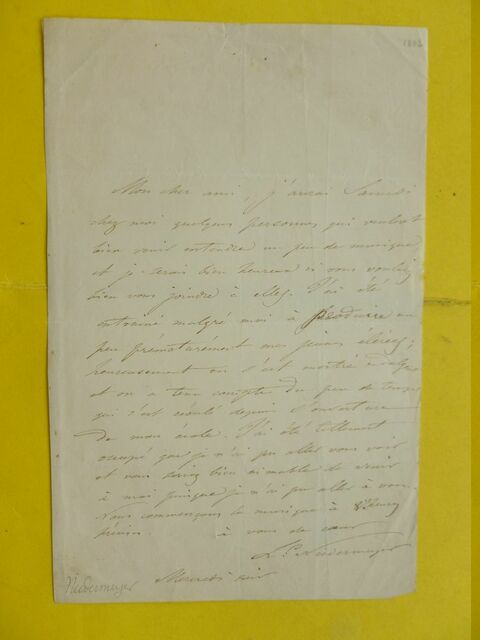 Mon cher ami, j'aurai Samedi
chez moi quelques personnes qui veulent
bien venir entendre un peu de musique
et je serais bien heureux si vous vouliez
bien vous joindre à elles. J'ai été
entrainé malgré moi à produire un
peu prématurément mes jeunes élèves;
heureusement on s'est montré indulgent
et on a tenu compte du peu de temps
qui s'est écoulé depuis l'ouverture
de mon école. J'ai été tellement
occupé que je n'ai pu aller vous voir
et vous seriez bien aimable de venir
à moi puisque je n'ai pu aller à vous.
Nous commençons la musique à 8 heures
précises. à vous de cœur
L. Niedermeyer
Mercredi soir
Niedermeyer